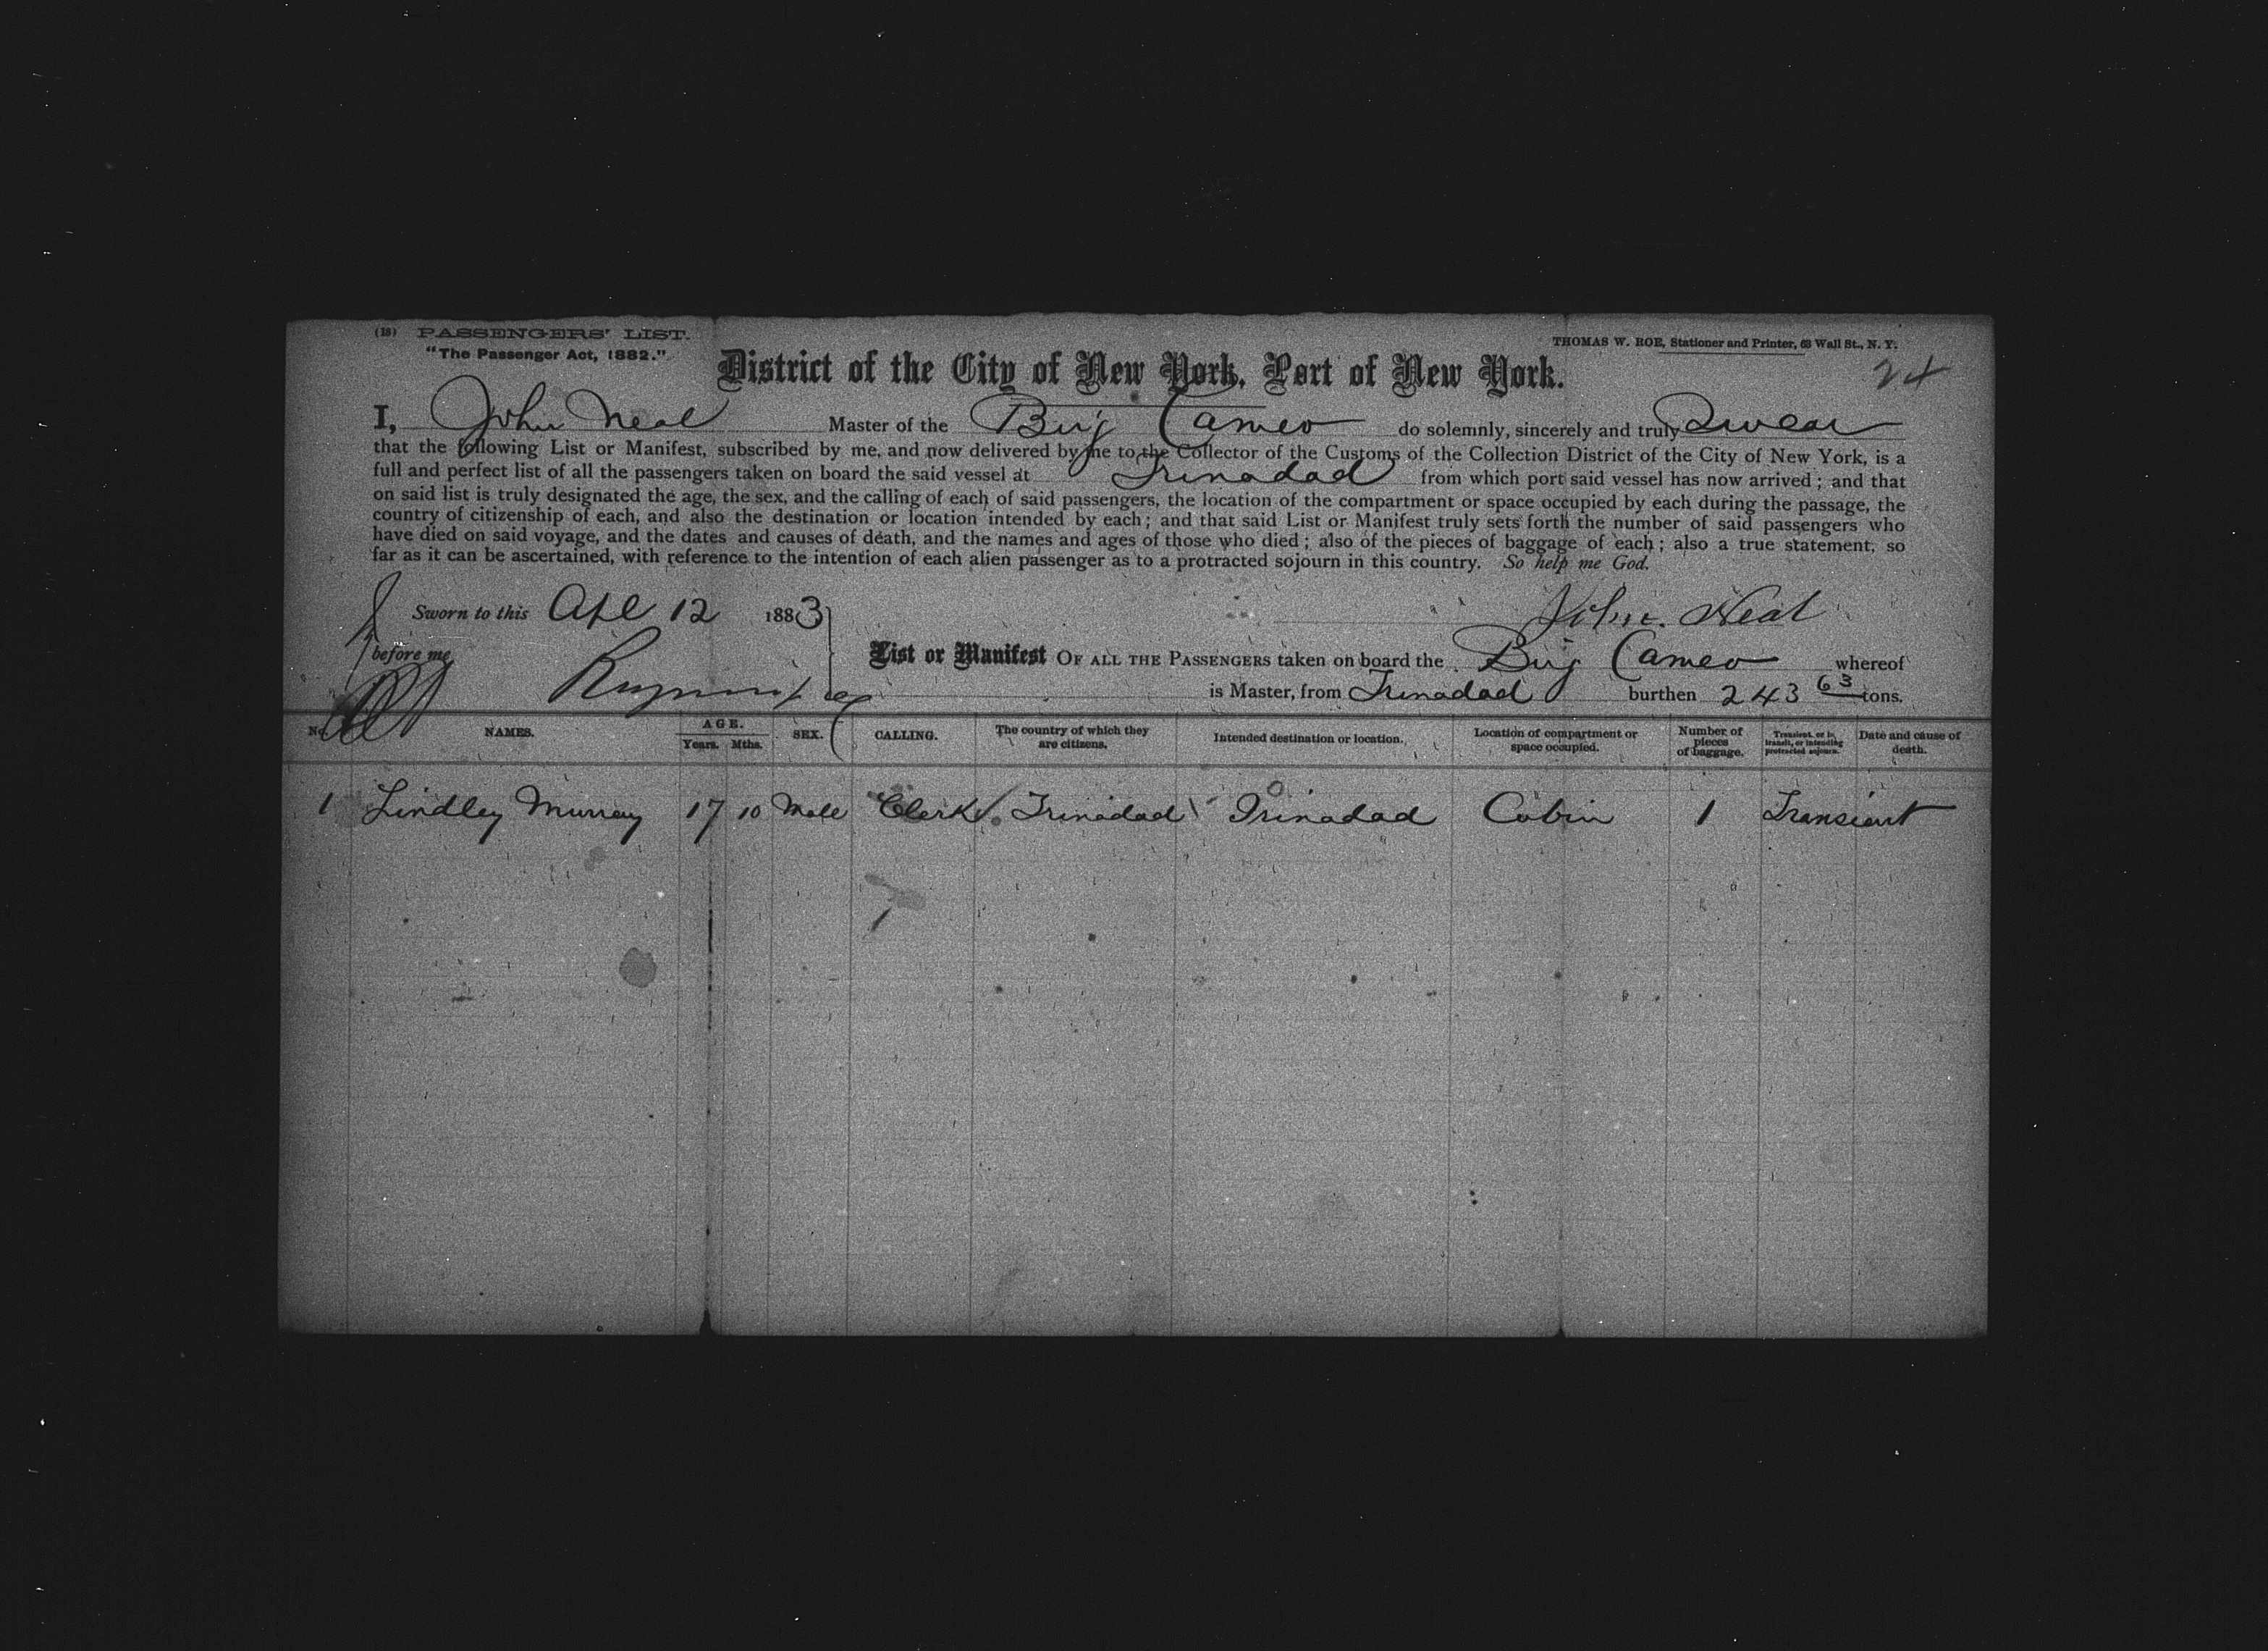 (18) PASSENGERS' LIST.
"The Passenger Act, 1882."
THOMAS W. ROE, Stationer and Printer, 63 Wall St., N. Y.
District of the City of New York, Port of New York.
24
I, John Neal Master of the Brig Cameo do solemnly, sincerely and truly Swear
that the following List or Manifest, subscribed by me, and now delivered by me to the Collector of the Customs of the Collection District of the City of New York, is a
full and perfect list of all the passengers taken on board the said vessel at Trinadad from which port said vessel has now arrived; and that
on said list is truly designated the age, the sex, and the calling of each of said passengers, the location of the compartment or space occupied by each during the passage, the
country of citizenship of each, and also the destination or location intended by each; and that said List or Manifest truly sets forth the number of said passengers who
have died on said voyage, and the dates and causes of death, and the names and ages of those who died; also of the pieces of baggage of each; also a true statement, so
far as it can be ascertained, with reference to the intention of each alien passenger as to a protracted sojourn in this country. So help me God.
Sworn to this Apl 12 1883
John. Neal
before me
List or Manifest OF ALL THE PASSENGERS taken on board the Brig Cameo whereof
is Master, from Trinadad burthen 243 63 tons.
No. NAMES. AGE. Years. Mths. SEX. CALLING. The country of which they are citizens. Intended destination or location. Location of compartment or space occupied. Number of pieces of baggage. Transient, or in transit, or intending protracted sojourn. Date and cause of death.
1 Lindley Murray 17 10 Male Clerk Trinadad Trinadad Cabin 1 Transient